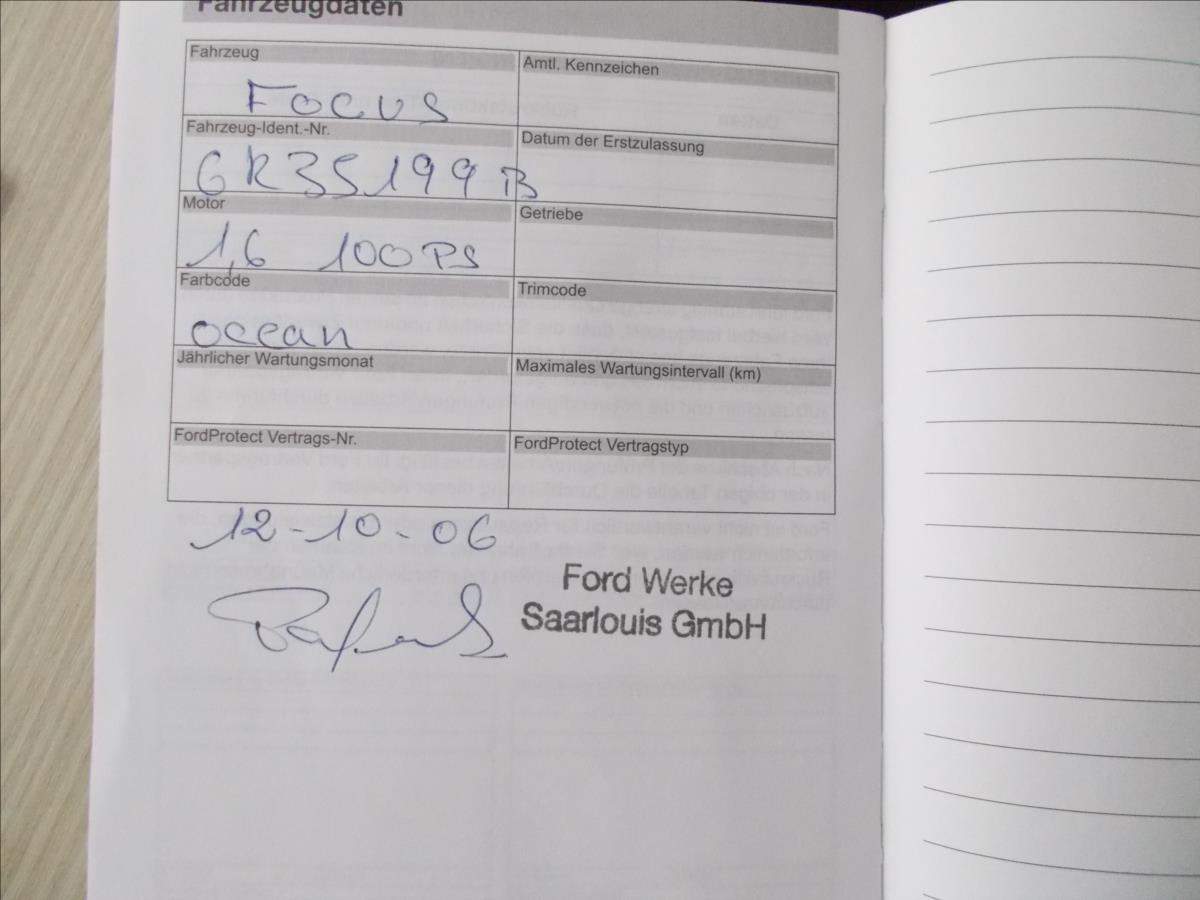 Fahrzeugdaten
Fahrzeug
Amtl. Kennzeichen
Focus
Fahrzeug-Ident.-Nr.
Datum der Erstzulassung
6R35199B
Motor
Getriebe
1,6 100 PS
Farbcode
Trimcode
ocean
Jährlicher Wartungsmonat
Maximales Wartungsintervall (km)
FordProtect Vertrags-Nr.
FordProtect Vertragstyp
12-10-06
Ford Werke
Saarlouis GmbH